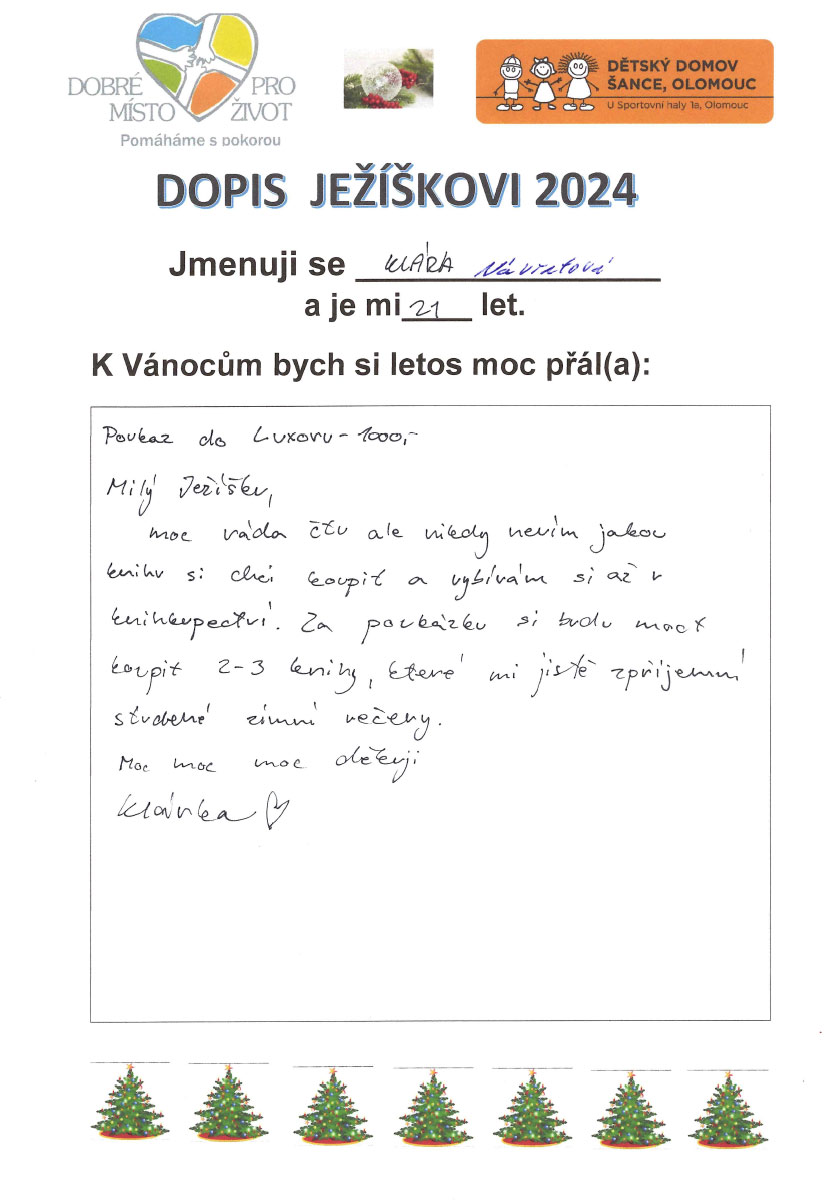 DOBRÉ PRO
MÍSTO ŽIVOT
Pomáháme s pokorou
DĚTSKÝ DOMOV
ŠANCE, OLOMOUC
U Sportovní haly 1a, Olomouc
DOPIS JEŽÍŠKOVI 2024
Jmenuji se KLÁRA Návratová
a je mi 21 let.
K Vánocům bych si letos moc přál(a):
Poukaz do Luxoru - 1000,-
Milý Ježíšku,
moc ráda čtu ale nikdy nevím jakou
knihu si chci koupit a vybívám si až v
knihkupectví. Za poukázku si budu moct
koupit 2-3 knihy, které mi jistě zpříjemní
studené zimní večery.
Moc moc moc děkuji
Klárka